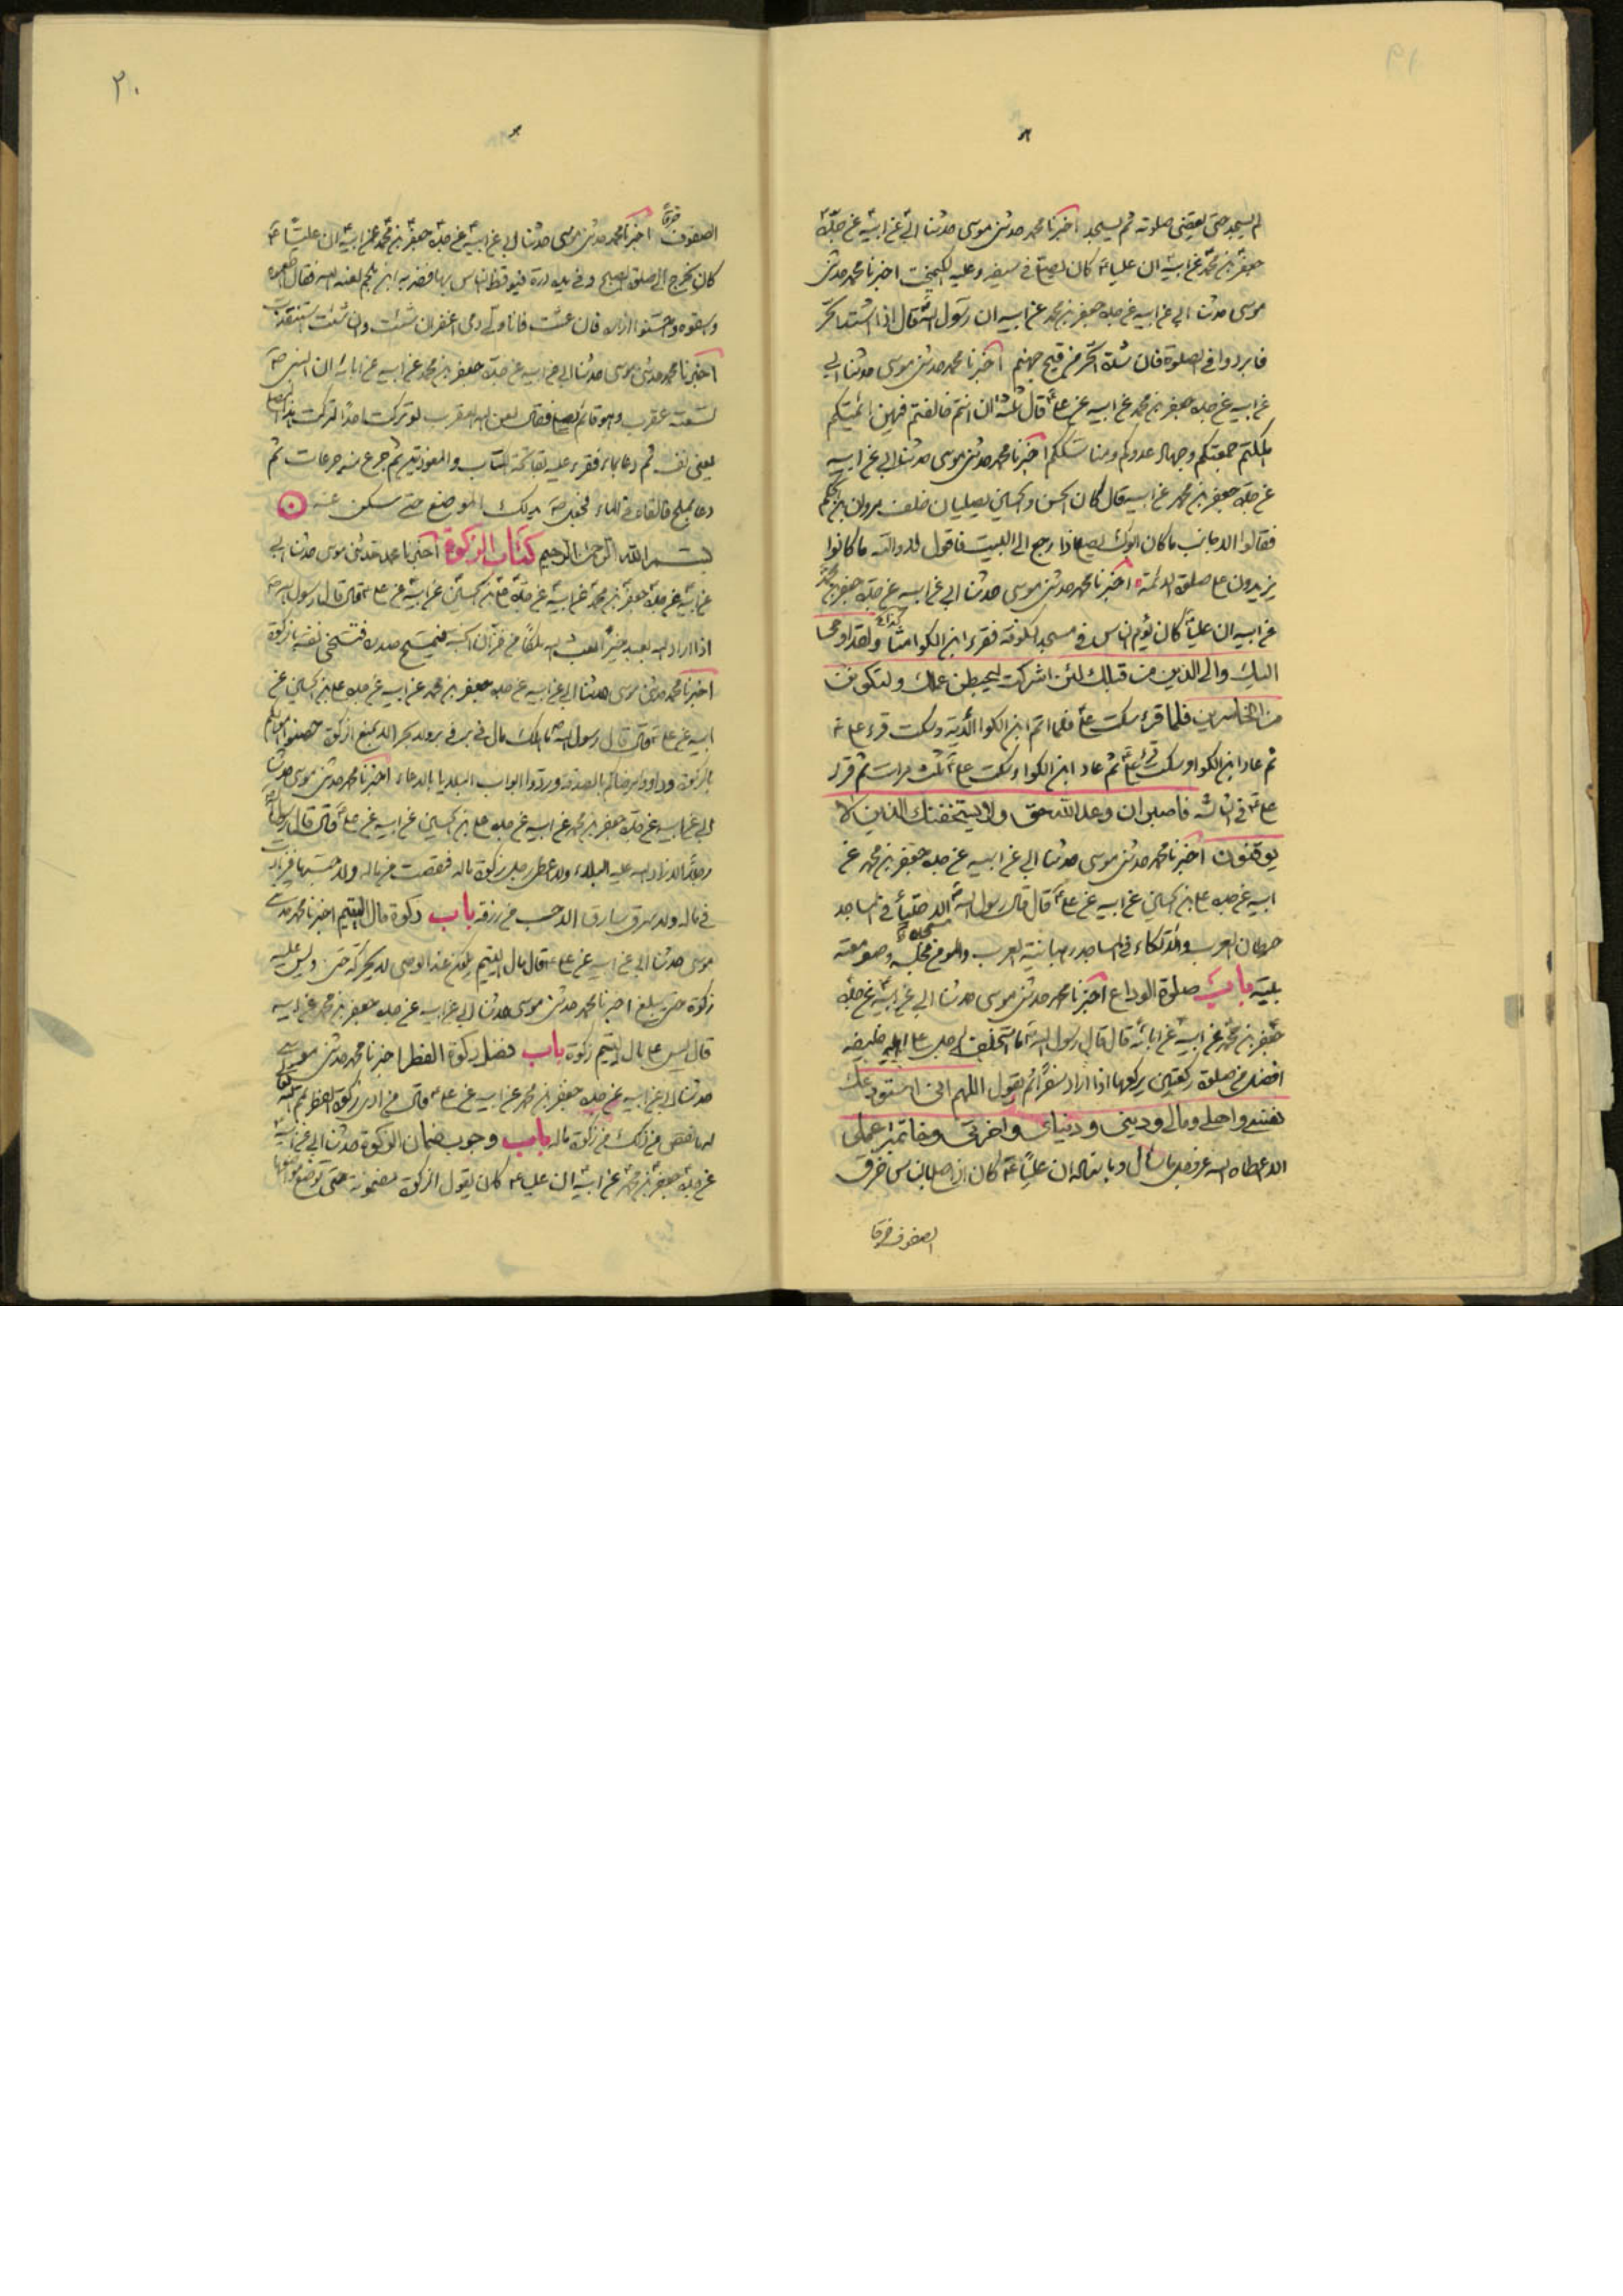 ١٩
لم يسجد حتى يقضى صلوته ثم يسجد اخبرنا محمد حدثنى موسى حدثنا ابى عن ابيه عن جده
جعفر بن محمد عن ابيه ان عليا ع كان يصلى فى سيفه وعليه الكيمخت اخبرنا محمد حدثنى
موسى حدثنا ابى عن ابيه عن جده جعفر بن محمد عن ابيه ان رسول الله قال اذا اشتد الحر
فابردوا فى الصلوة فان شدة الحر من فيح جهنم اخبرنا محمد حدثنى موسى حدثنا ابى
عن ابيه عن جده جعفر بن محمد عن ابيه عن على ع قال ثلثة ان انتم خالفتم فيهن ائمتكم
هلكتم جمعتكم وجهاد عدوكم ومناسككم اخبرنا محمد حدثنى موسى حدثنا ابى عن ابيه
عن جده جعفر بن محمد عن ابيه قال كان الحسن والحسين يصليان خلف مروان بن الحكم
فقالوا لاحدهما ما كان ابوك يصلى اذا رجع الى البيت فيقول لا والله ما كانوا
يزيدون على صلوة الائمة اخبرنا محمد حدثنى موسى حدثنا ابى عن ابيه عن جده جعفر بن محمد
عن ابيه ان عليا كان يؤم الناس فى مسجد الكوفة فقرء ابن الكوا ولقد اوحى
اليك والى الذين من قبلك لئن اشركت ليحبطن عملك ولتكونن
من الخاسرين فلما قرء سكت على فلما اتم ابن الكوا الاية وسكت قرء على ع
ثم عاد ابن الكوا وسكت على ثم عاد ابن الكواء سكت على ثلث مرات ثم قرء
على ع فى الثالثة فاصبر ان وعد الله حق ولا يستخفنك الذين لا
يوقنون اخبرنا محمد حدثنى موسى حدثنا ابى عن ابيه عن جده جعفر بن محمد عن
ابيه عن جده على بن الحسين عن ابيه عن على ع قال قال رسول الله الاحتباء فى المساجد
حيطان العرب والاتكاء فى المساجد رهبانية العرب والمؤمن مجلسه وصومعته
بيته باب صلوة الوداع اخبرنا محمد حدثنى موسى حدثنا ابى عن ابيه عن جده
جعفر بن محمد عن ابيه عن ابائه قال قال رسول الله ما استخلف رجل على اهله خليفة
افضل من صلوة ركعتين يركعهما اذا اراد سفرا ثم يقول اللهم انى استودعك
نفسى واهلى ومالى ودينى ودنياى واخرتى وخاتمة عملى
الا اعطاه الله عز وجل ما سأل وباسناده ان عليا ع كان اذا صلى بالناس خرق
الصفوف خرقا
٢٠
الصفوف خرقا اخبرنا محمد حدثنى موسى حدثنا ابى عن ابيه عن جده جعفر بن محمد عن ابيه ان عليا ع
كان يخرج الى صلوة الصبح وفى يده درة فيوقظ الناس بها فضربه ابن ملجم لعنه الله فقال اطعموه
واسقوه واحسنوا اساره فان عشت فانا ولى دمى اعفو ان شئت وان شئت استقدت
اخبرنا محمد حدثنى موسى حدثنا ابى عن ابيه عن جده جعفر بن محمد عن ابيه عن ابائه ان النبى ص
لسعته عقرب وهو قائم يصلى فقال لعن الله العقرب لو تركت احدا لتركت هذا المصلى
يعنى نفسه ثم دعا بماء فقرء عليه بفاتحة الكتاب والمعوذتين ثم جرع منه جرعات ثم
دعا بملح فالقاه فى الماء فجعل ص يدلك الموضع حتى سكن عنه
بسم الله الرحمن الرحيم كتاب الزكوة اخبرنا محمد حدثنى موسى حدثنا ابى
عن ابيه عن جده جعفر بن محمد عن ابيه عن جده على بن الحسين عن ابيه عن على ع قال قال رسول الله ص
اذا اراد الله بعبد خيرا بعث اليه ملكا من خزان الجنة فيمسح صدره فتسخى نفسه بالزكوة
اخبرنا محمد حدثنى موسى حدثنا ابى عن ابيه عن جده جعفر بن محمد عن ابيه عن جده على بن الحسين عن
ابيه عن على ع قال قال رسول الله ما هلك مال فى بر ولا بحر الا بمنع الزكوة حصنوا اموالكم
بالزكوة وداووا مرضاكم بالصدقة وردوا ابواب البلايا بالدعاء اخبرنا محمد حدثنى موسى حدثنا
ابى عن ابيه عن جده جعفر بن محمد عن ابيه عن جده على بن الحسين عن ابيه عن على ع قال قال رسول الله
الا زاد الله عليه البلاء ولا اعطى رجل زكوة ماله فنقصت من ماله ولا حبسها فزادت
فى ماله ولا سرق سارق الا حسب من رزقه باب زكوة مال اليتيم اخبرنا محمد حدثنى
موسى حدثنا ابى عن ابيه عن على ع قال مال اليتيم يكون عند الوصى لا يحركه حتى وليس عليه
زكوة حتى يبلغ اخبرنا محمد حدثنى موسى حدثنا ابى عن ابيه عن جده جعفر بن محمد عن ابيه
قال ليس على مال اليتيم زكوة باب فضل زكوة الفطر اخبرنا محمد حدثنى موسى
حدثنا ابى عن ابيه عن جده جعفر بن محمد عن ابيه عن على ع قال من ادى زكوة الفطر تمم الله
له ما نقص من زكوة ماله باب وجوب ضمان الزكوة حدثنا ابى عن ابيه
عن جده جعفر بن محمد عن ابيه ان عليا ع كان يقول الزكوة مضمونة حتى توضع مواضعها